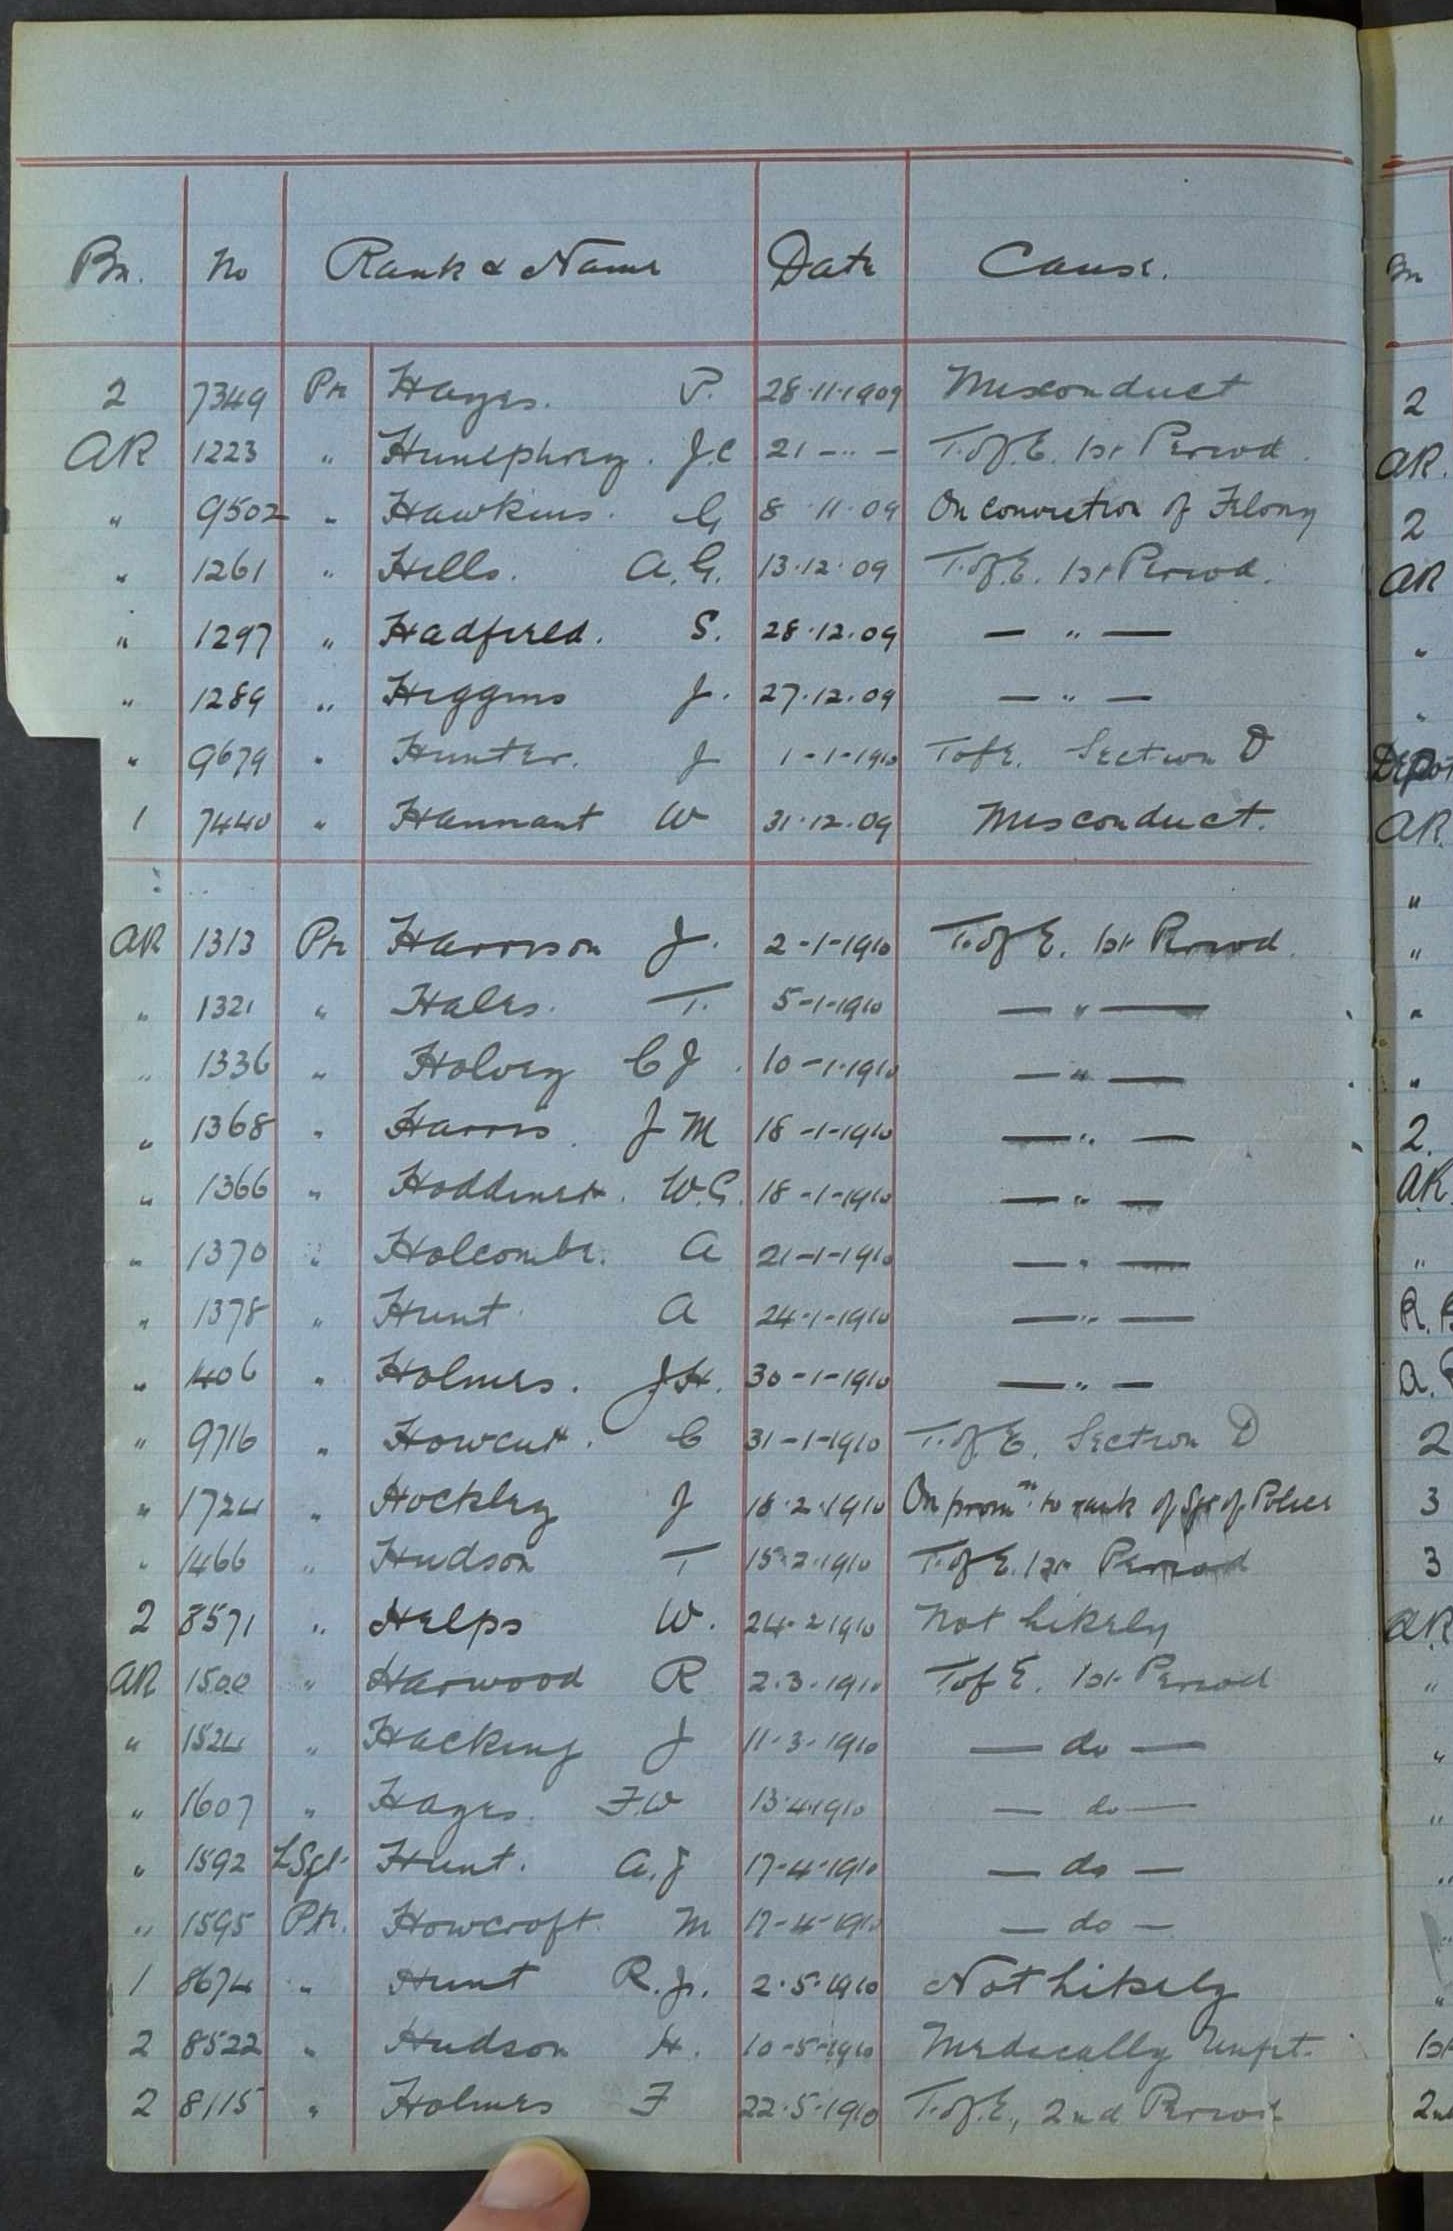 Bn. No Rank & Name Date Cause.
2 7349 Pte Hayes. P. 28.11.1909 Misconduct
AR 1223 " Humephrey. J.C 21 - " - T. of E. 1st Period.
" 9502 " Hawkins. G 8.11.09 On conviction of Felony
" 1261 " Hills. A.G. 13.12.09 T. of E. 1st Period.
" 1297 " Hadfield. S. 28.12.09 — " —
" 1289 " Higgins J. 27.12.09 — " —
" 9679 " Hunter. J 1-1-1910 T of E. Section D
1 7440 " Hannant W 31.12.09 Misconduct.
AR 1313 Pte Harrison J. 2-1-1910 T. of E. 1st Period.
" 1321 " Hales. T. 5-1-1910 — " —
" 1336 " Holvey C J. 10-1-1910 — " —
" 1368 " Harris. J M 18-1-1910 — " —
" 1366 " Hoddinett. W.G. 18-1-1910 — " —
" 1370 " Holcombe. A 21-1-1910 — " —
" 1378 " Hunt A 24-1-1910 — " —
" 1406 " Holmes. J.H. 30-1-1910 — " —
" 9716 " Howcutt. C 31-1-1910 T. of E. Section D
" 1724 " Hockley J 18.2.1910 On promn. to rank of Sgt of Police
" 1466 " Hudson T 15.2.1910 T. of E. 1st Period
2 8571 " Helps W. 24.2.1910 Not Likely
AR 1500 " Harwood R 2.3.1910 T of E. 1st Period
" 1524 " Hacking J 11.3.1910 — do —
" 1607 " Hayes. F.W 13.4.1910 — do —
" 1592 L Sgt. Hunt. A.J 17-4-1910 — do —
" 1595 Pte. Howcroft. M 17-4-1910 — do —
1 8674 " Hunt R.J. 2.5.1910 Not Likely
2 8522 " Hudson H. 10-5-1910 Medically Unfit.
2 8115 " Holmes F 22.5.1910 T. of E, 2nd Period
Bn
2
AR.
2
AR
"
"
Depot
AR.
"
"
"
"
2.
AR
"
2
3
3
AR
"
"
"
"
"
"
1st